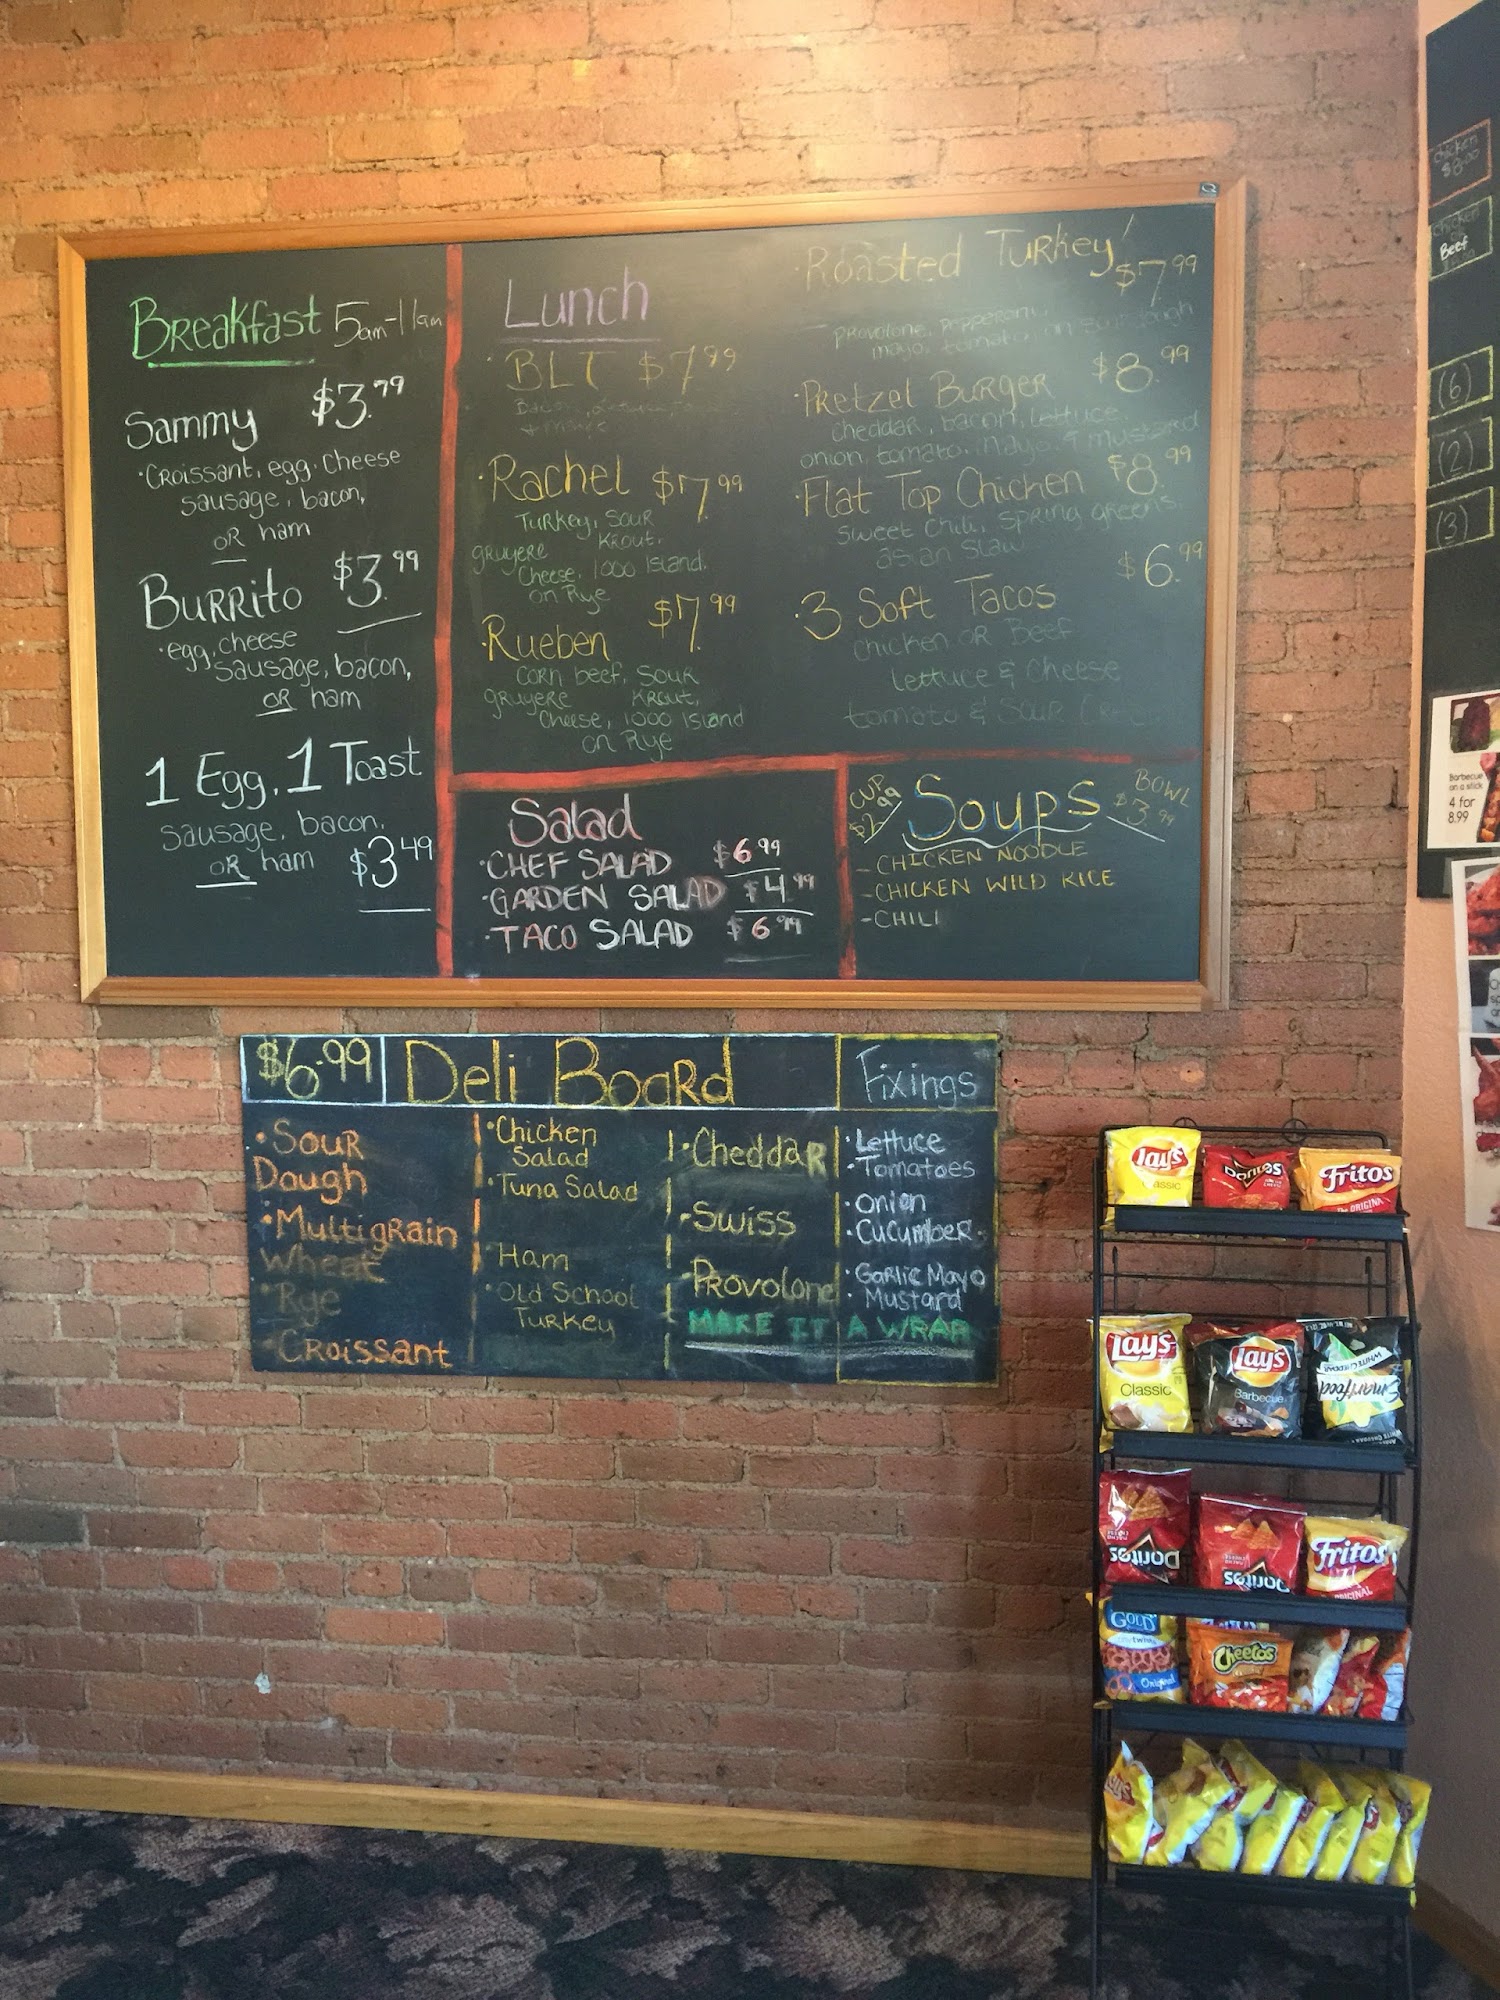 Breakfast 5am-11am
Sammy $3.79
·Croissant, egg, Cheese
sausage, bacon,
OR ham
Burrito $3.99
·egg, cheese
sausage, bacon,
OR ham
1 Egg, 1 Toast
sausage, bacon,
OR ham $3.49
Lunch
·BLT $7.99
·Rachel $7.99
Turkey, Sour
gruyere Krout,
Cheese, 1000 Island,
on Rye
·Rueben $7.99
Corn beef, Sour
gruyere Krout,
Cheese, 1000 Island
on Rye
·Roasted Turkey $7.99
provolone, pepperoni,
mayo, tomato, on sourdough
·Pretzel Burger $8.99
cheddar, bacon, lettuce,
onion, tomato, Mayo, & mustard
·Flat Top Chicken $8.99
Sweet Chili, Spring greens,
asian slaw
·3 Soft Tacos $6.99
chicken OR Beef
lettuce & Cheese
tomato & Sour
Salad
·CHEF SALAD $6.99
·GARDEN SALAD $4.99
·TACO SALAD $6.99
CUP $2.99 Soups BOWL $3.99
-CHICKEN NOODLE
-CHICKEN WILD RICE
-CHILI
$6.99 Deli Board Fixings
·Sour
Dough
·Multigrain
Wheat
·Rye
·Croissant
·Chicken
Salad
·Tuna Salad
·Ham
·Old School
Turkey
·Cheddar
·Swiss
·Provolone
MAKE IT A WRAP
·Lettuce
·Tomatoes
·Onion
·Cucumber
·Garlic Mayo
·Mustard
chicken
$8.00
chicken
Beef
(6)
(2)
(3)
Barbecue
on a stick
4 for
8.99
Lay's
Classic
Doritos
Fritos
ORIGINAL
Lay's
Classic
Lay's
Barbecue
Smartfood
WHITE CHEDDAR
Doritos
Doritos
Fritos
ORIGINAL
GOLD
Original
Cheetos